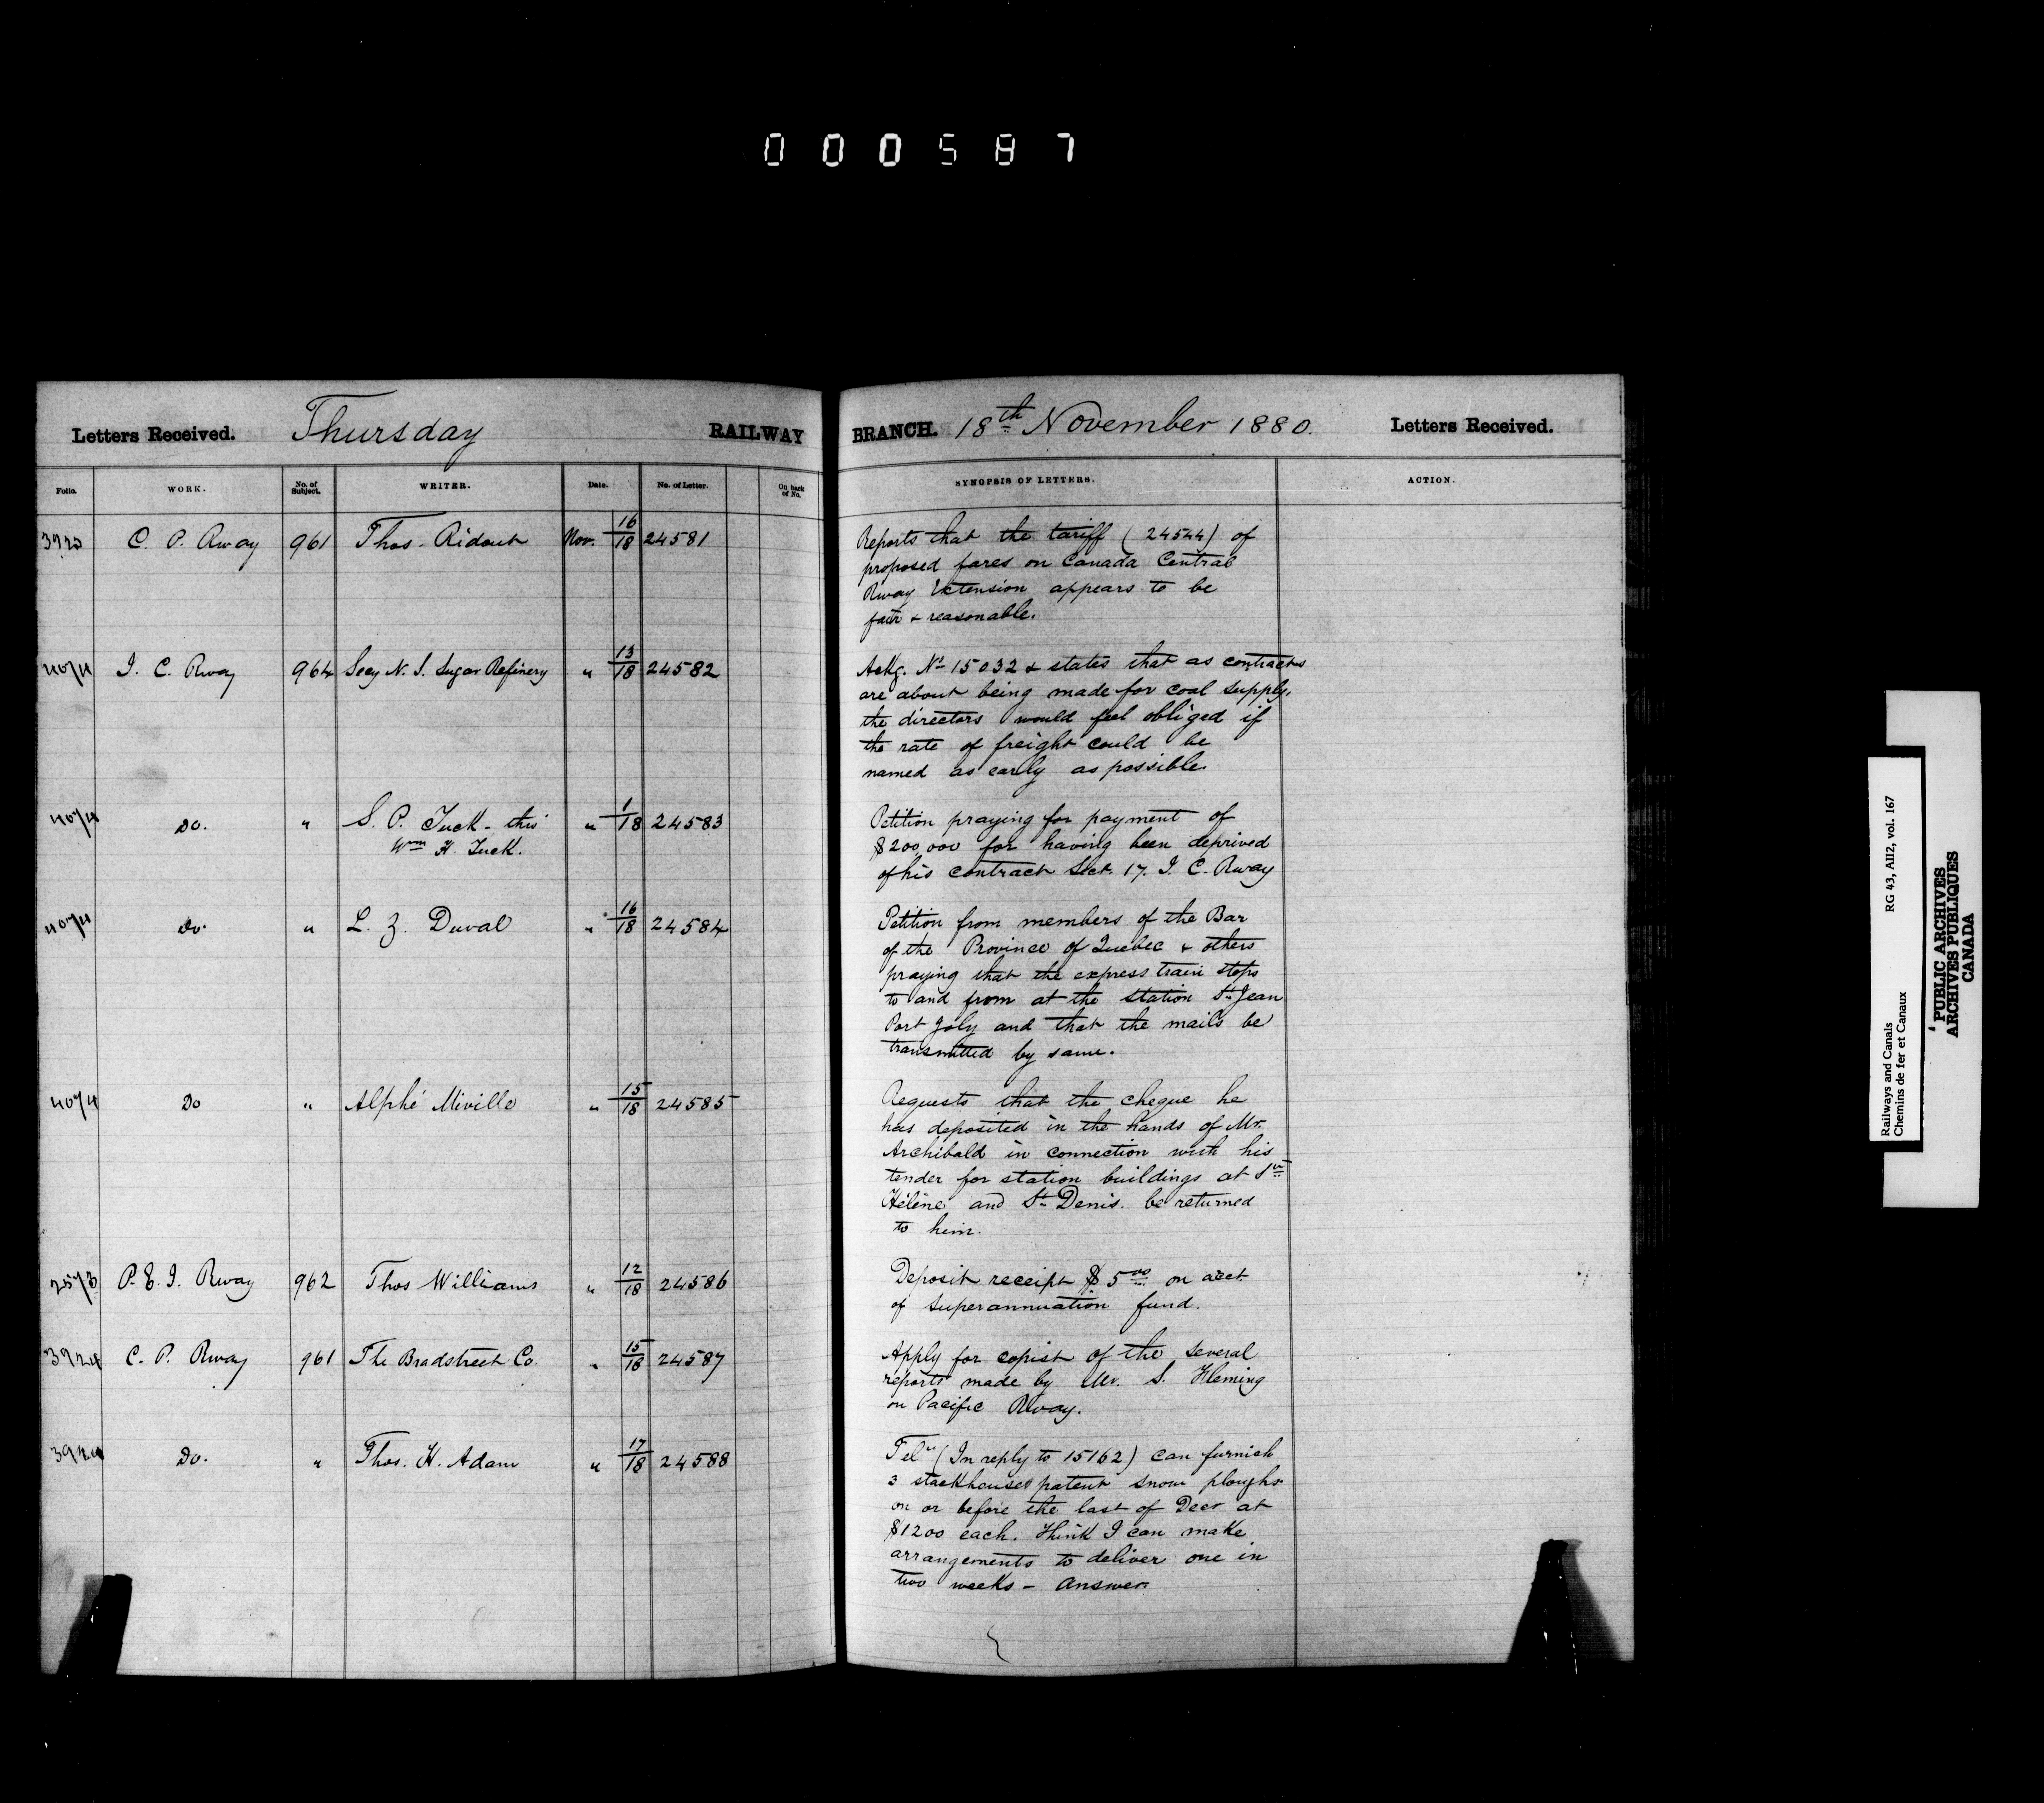 000587
Letters Received. Thursday RAILWAY BRANCH. 18th November 1880. Letters Received.
Folio. WORK. No. of Subject. WRITER. Date. No. of Letter. On back of No. SYNOPSIS OF LETTERS. ACTION.
C. P. Rway 961 Thos. Ridout Nov. 16/18 24581
Reports that the tariff (24544) of
proposed fares on Canada Central
Rway Extension appears to be
fair & reasonable.
I. C. Rway 964 Secy N. S. Sugar Refinery " 13/18 24582
Ackg. No 15032 & states that as contracts
are about being made for coal supply,
the directors would feel obliged if
the rate of freight could be
named as early as possible.
Do. " S. P. Tuck - thro' " 1/18 24583
Wm H. Tuck.
Petition praying for payment of
$200,000 for having been deprived
of his contract Sect. 17. I. C. Rway
Do. " L. Z. Duval " 16/18 24584
Petition from members of the Bar
of the Province of Quebec & others
praying that the express train stops
to and from at the station St. Jean
Port Joly and that the mails be
transmitted by same.
Do " Alphé Miville " 15/18 24585
Requests that the cheque he
has deposited in the hands of Mr.
Archibald in connection with his
tender for station buildings at Ste
Hélène and St. Denis. be returned
to him.
2573 P. E. I. Rway 962 Thos Williams " 12/18 24586
Deposit receipt $5.00 on acct.
of superannuation fund.
3924 C. P. Rway 961 The Bradstreet Co. " 15/18 24587
Apply for copies of the several
reports made by Mr. S. Fleming
on Pacific Rway.
3924 Do. " Thos. H. Adam " 17/18 24588
Tel. (In reply to 15162) can furnish
3 stackhouses patent snow ploughs
on or before the last of Decr at
$1200 each. Think I can make
arrangements to deliver one in
two weeks - answer.
Railways and Canals RG 43, AII2, vol. 167
Chemins de fer et Canaux
PUBLIC ARCHIVES
ARCHIVES PUBLIQUES
CANADA